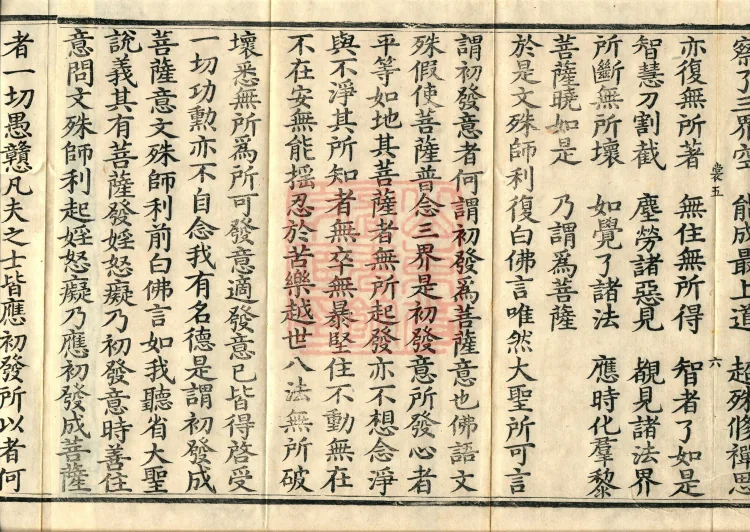 察了三界空　能成最上道　超殊修禪思
亦復無所著　無住無所得　智者了如是
裳五　六
智慧刀割截　塵勞諸惡見　覩見諸法界
所斷無所壞　如覺了諸法　應時化羣黎
菩薩曉如是　乃謂為菩薩
於是文殊師利復白佛言唯然大聖所可言
謂初發意者何謂初發為菩薩意也佛語文
殊假使菩薩普念三界是初發意所發心者
平等如地其菩薩者無所起發亦不想念淨
與不淨其所知者無卒無暴堅住不動無在
不在安無能搖忍於苦樂越世八法無所破
壞悉無所為所可發意適發意已皆得啓受
一切功勲亦不自念我有名德是謂初發成
菩薩意文殊師利前白佛言如我聽省大聖
說義其有菩薩發婬怒癡乃初發意時善住
意問文殊師利起婬怒癡乃應初發成菩薩
者一切愚戇凡夫之士皆應初發所以者何